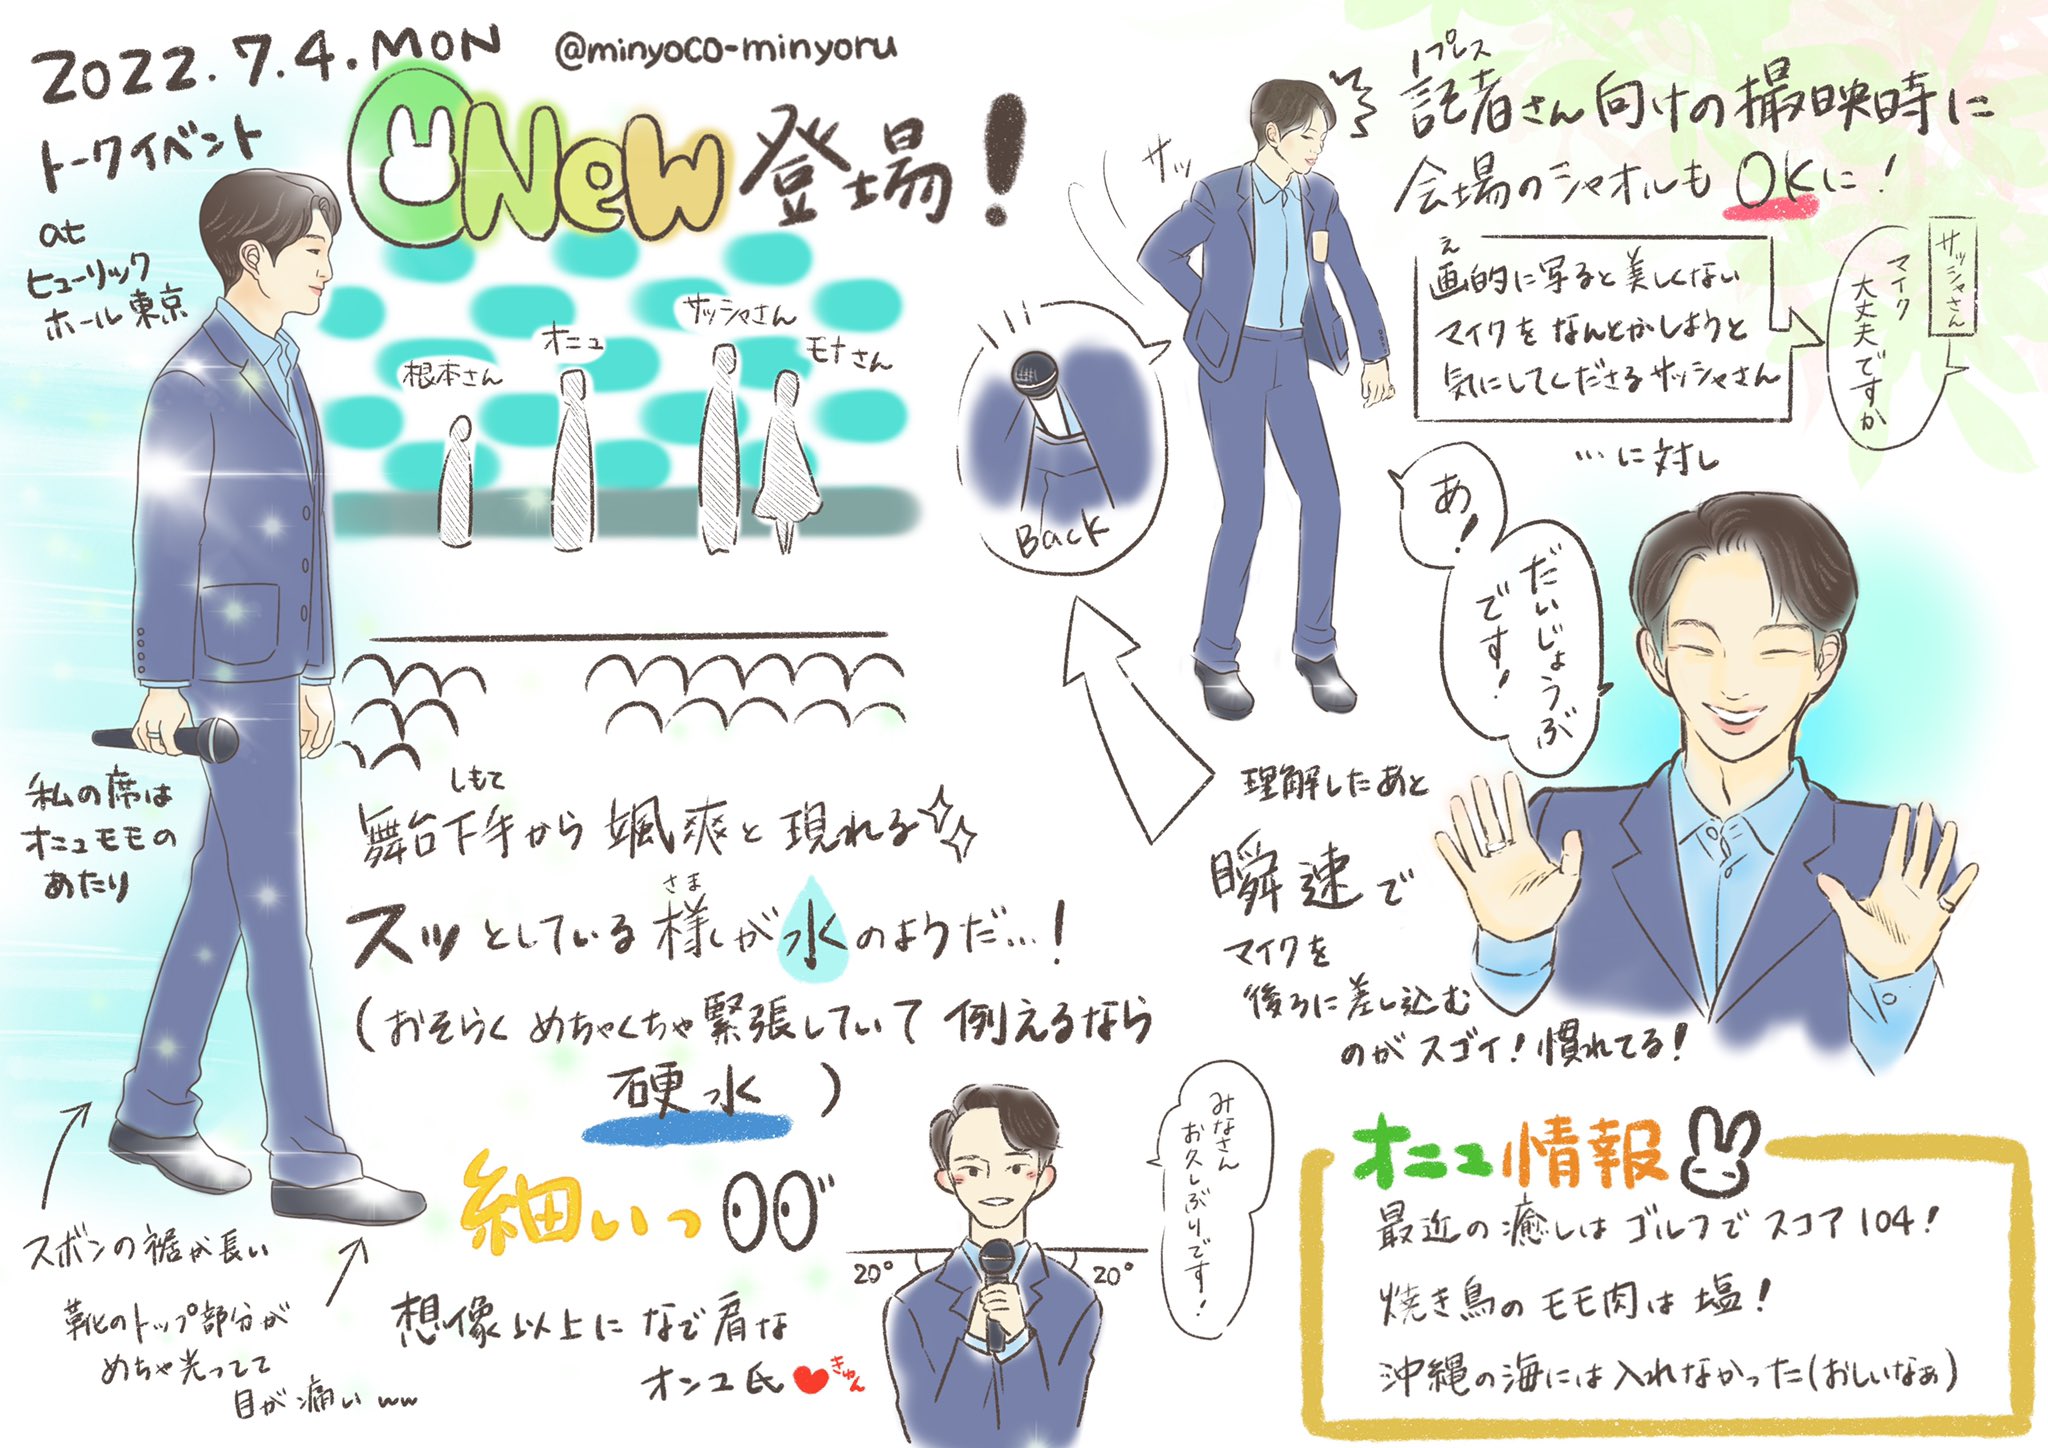 2022.7.4.MON
@minyoco-minyoru
トークイベント
at
ヒューリック
ホール東京
ONew登場!
根本さん
オニュ
サッシャさん
モナさん
私の席は
オニュモモの
あたり
しもて
舞台下手から颯爽と現れる
さま
スッとしている様が水のようだ…!
(おそらくめちゃくちゃ緊張していて例えるなら
硬水)
細いっ
想像以上になで肩な
オンユ氏 きゅん
20°
20°
みなさん
お久しぶりです!
ズボンの裾が長い
靴のトップ部分が
めちゃ光ってて
目が痛いww
プレス
記者さん向けの撮映時に
会場のシャオルもOKに!
え
画的に写ると美しくない
マイクをなんとかしようと
気にしてくださるサッシャさん
サッシャさん
マイク
大丈夫ですか
…に対し
あ!
だいじょうぶ
です!
サッ
Back
理解したあと
瞬速で
マイクを
後ろに差し込む
のがスゴイ!慣れてる!
オニュ情報
最近の癒しはゴルフでスコア104!
焼き鳥のモモ肉は塩!
沖縄の海には入れなかった(おしいなぁ)